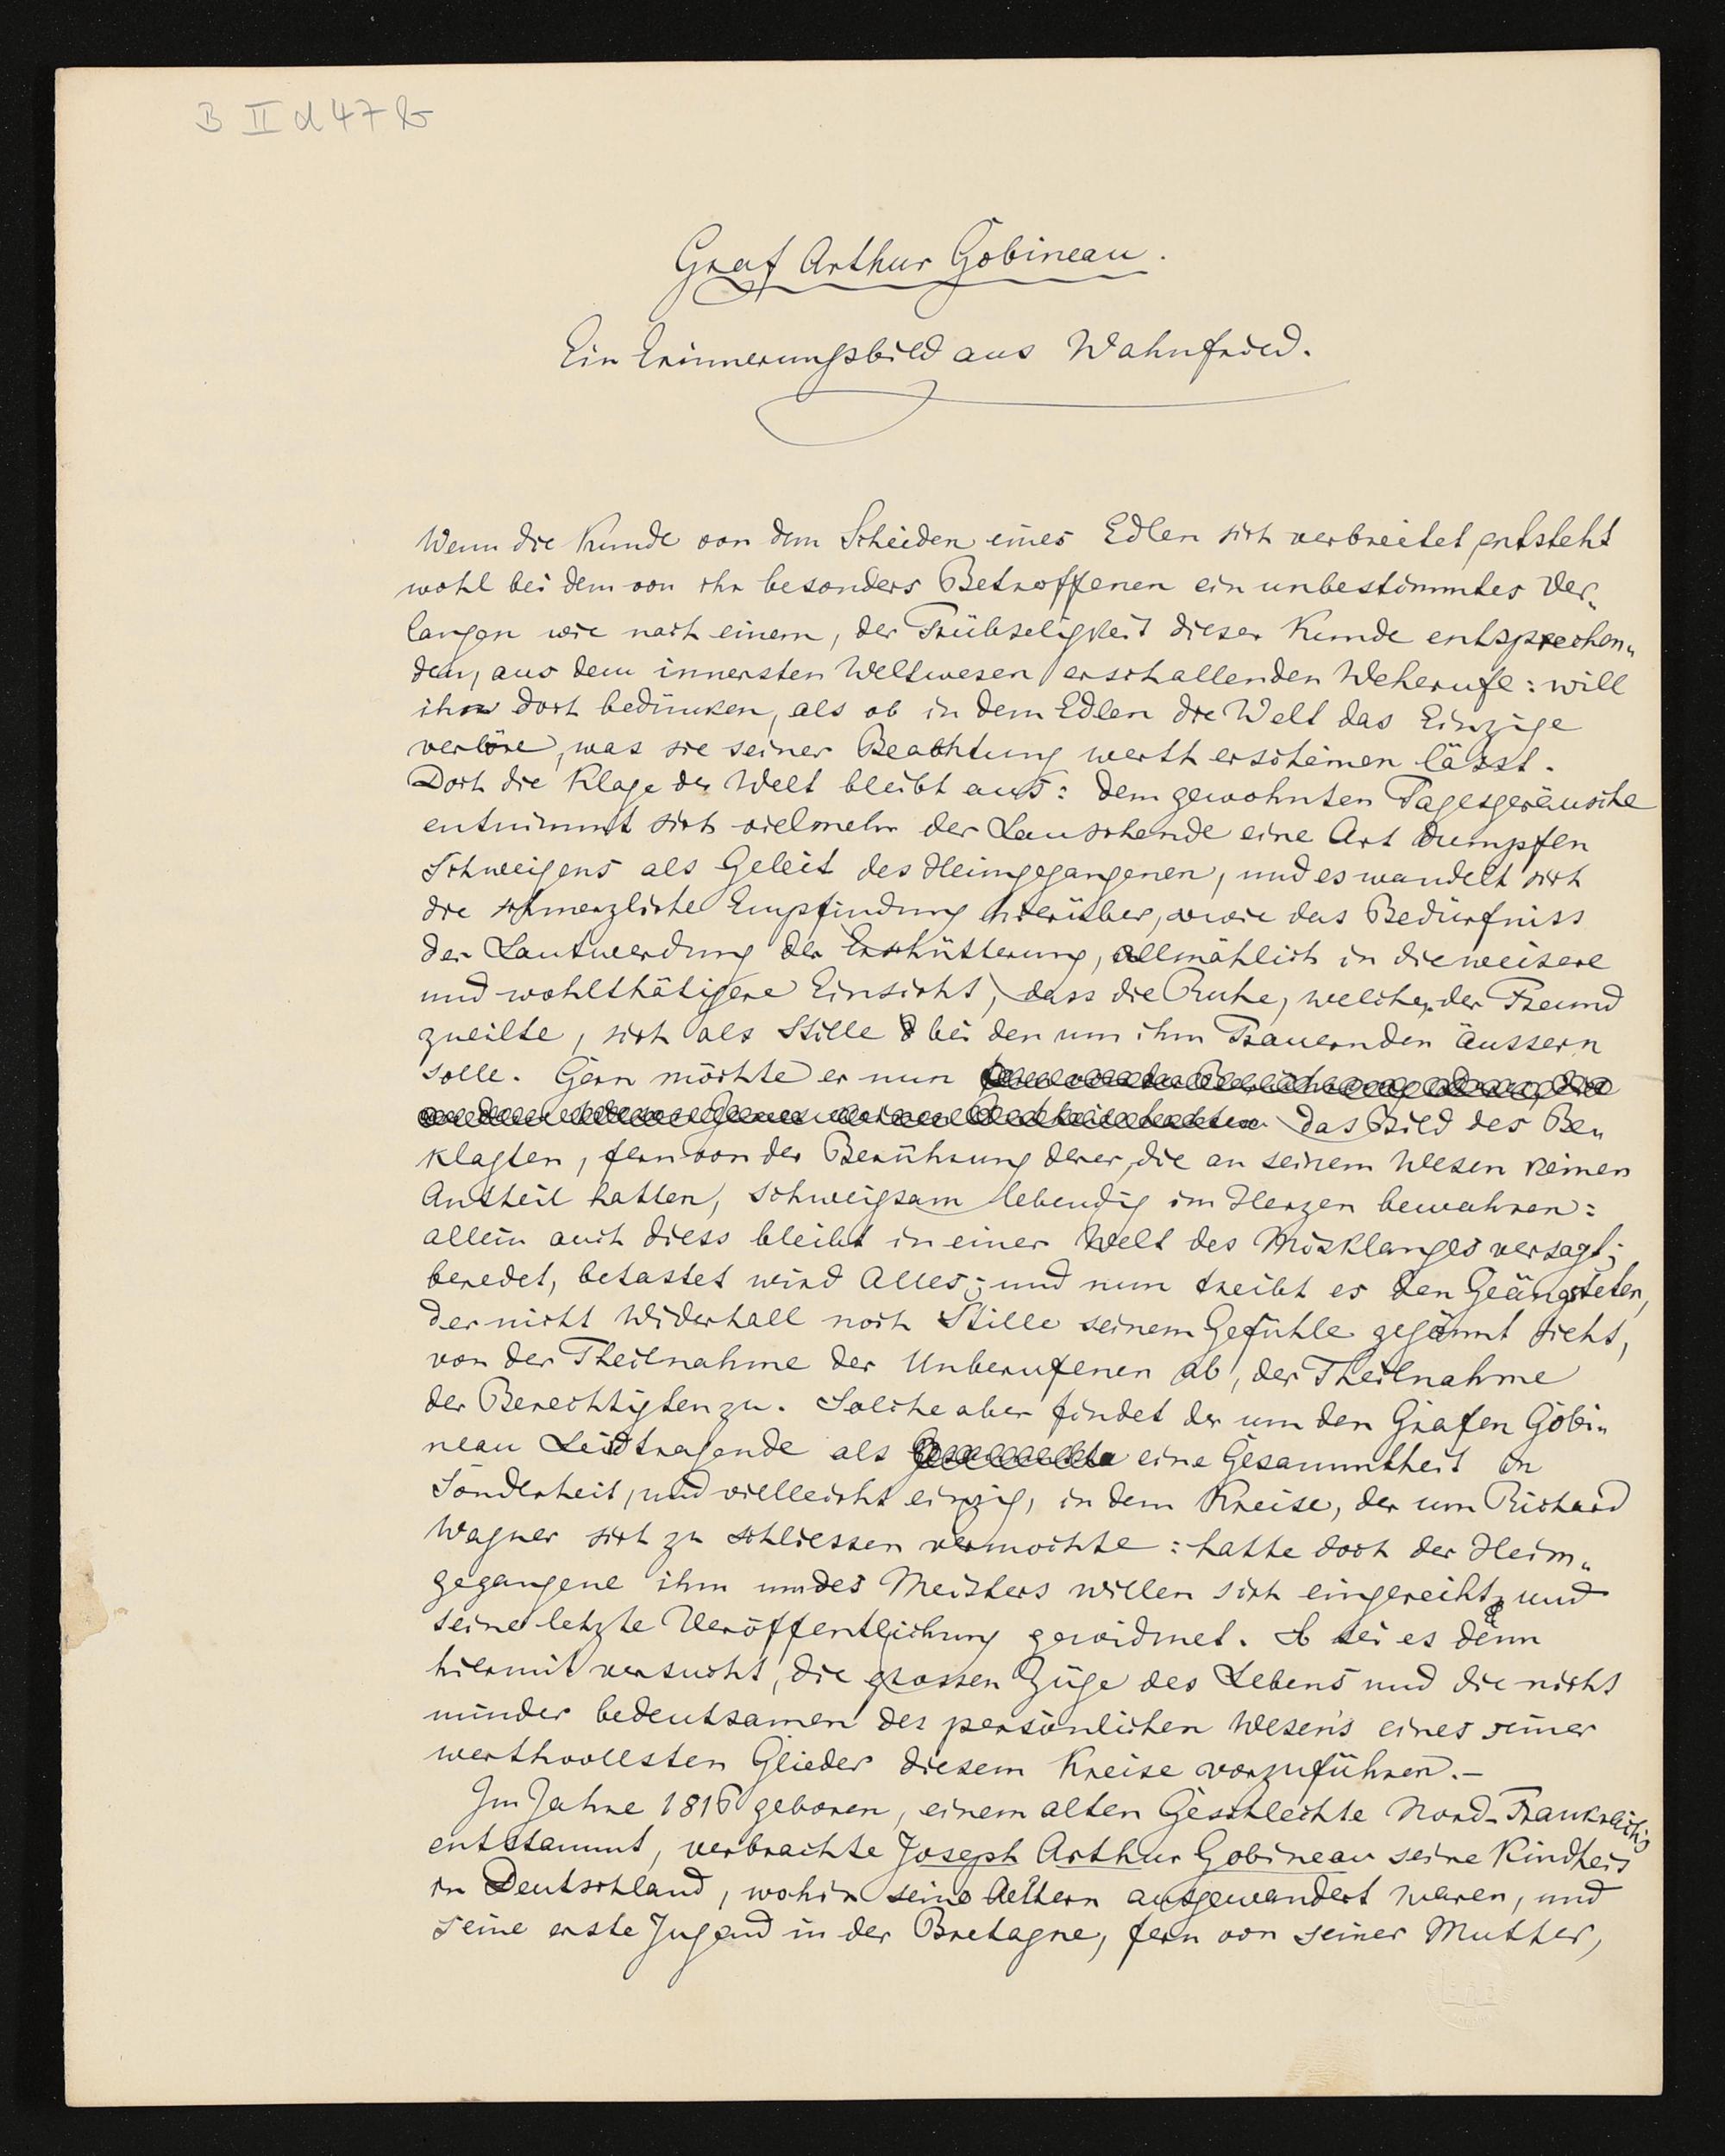 B II d 47 b
Graf Arthur Gobineau.
Ein Erinnerungsbild aus Wahnfried.
Wenn die Kunde von dem Scheiden eines Edlen sich verbreitet, entsteht
wohl bei dem von ihr besonders Betroffenen ein unbestimmtes Ver-
langen wie nach einem, der Trübseligkeit dieser Kunde entsprechen-
den, aus dem innersten Weltwesen erschallenden Weherufe: will
ihm doch bedünken, als ob in dem Edlen die Welt das Einzige
verlöre, was sie seiner Beachtung werth erscheinen lässt.
Doch die Klage der Welt bleibt aus: dem gewohnten Tagesgeräusche
entnimmt sich vielmehr der Lauschende eine Art dumpfen
Schweigens als Geleit des Heimgegangenen, und es wandelt sich
die schmerzliche Empfindung hierüber, sowie das Bedürfniss
der Lautwerdung der Erschütterung, allmählich in die weisere
und wohlthätigere Einsicht, dass die Ruhe, welcher der Freund
zueilte, sich als Stille bei den um ihm Trauernden äussern
solle. Gern möchte er nun
das Bild des Be-
klagten, fern von der Berührung derer, die an seinem Wesen keinen
Antheil hatten, schweigsam lebendig im Herzen bewahren:
allein auch diess bleibt in einer Welt des Missklanges versagt;
beredet, betastet wird Alles; und nun treibt es den Geängsteten,
der nicht Widerhall noch Stille seinem Gefühle gegönnt sieht,
von der Theilnahme der Unberufenen ab, der Theilnahme
der Berechtigten zu. Solche aber findet der um den Grafen Gobi-
neau Leidtragende als eine Gesammtheit in
Sonderheit, und vielleicht einzig, in dem Kreise, der um Richard
Wagner sich zu schliessen vermochte: hatte doch der Heim-
gegangene ihm um des Meisters willen sich eingereiht, und
seine letzte Veröffentlichung gewidmet. So sei es denn
hiermit versucht, die grossen Züge des Lebens und die nicht
minder bedeutsamen des persönlichen Wesens eines seiner
werthvollsten Glieder diesem Kreise vorzuführen.—
Im Jahre 1816 geboren, einem alten Geschlechte Nord-Frankreichs
entstammt, verbrachte Joseph Arthur Gobineau seine Kindheit
in Deutschland, wohin seine Aeltern ausgewandert waren, und
seine erste Jugend in der Bretagne, fern von seiner Mutter,